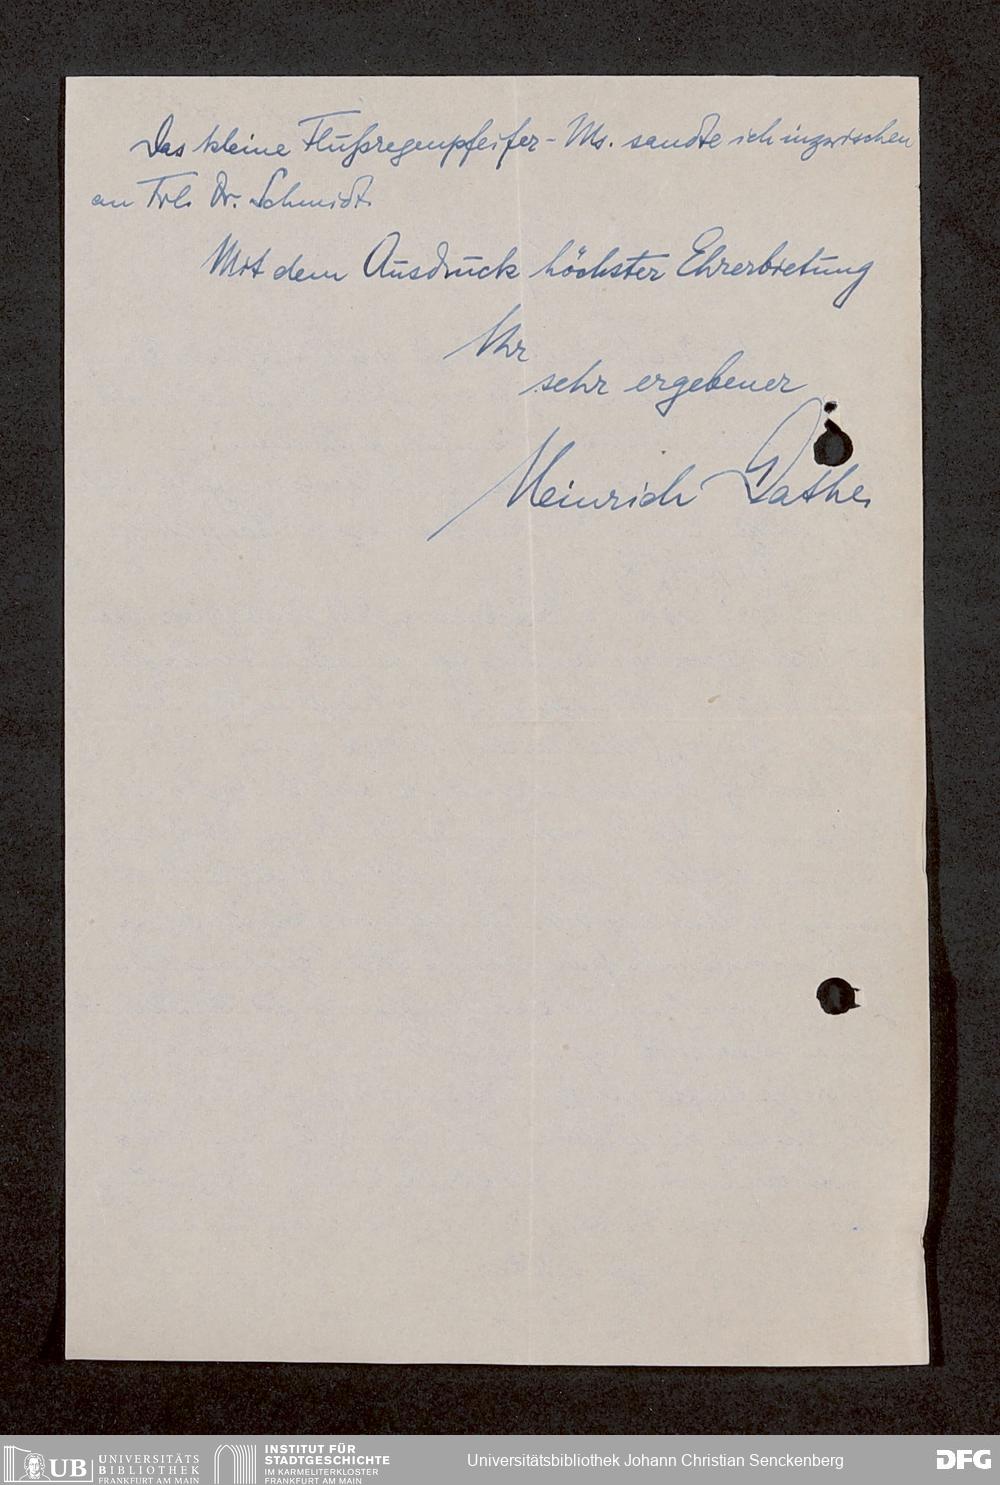 Das kleine Flußregenpfeifer-Ms. sandte ich inzwischen
an Frl. Dr. Schmidt.
Mit dem Ausdruck höchster Ehrerbietung
Ihr
sehr ergebener
Heinrich Dathe.
UB UNIVERSITÄTS
BIBLIOTHEK
FRANKFURT AM MAIN
INSTITUT FÜR
STADTGESCHICHTE
IM KARMELITERKLOSTER
FRANKFURT AM MAIN
Universitätsbibliothek Johann Christian Senckenberg
DFG